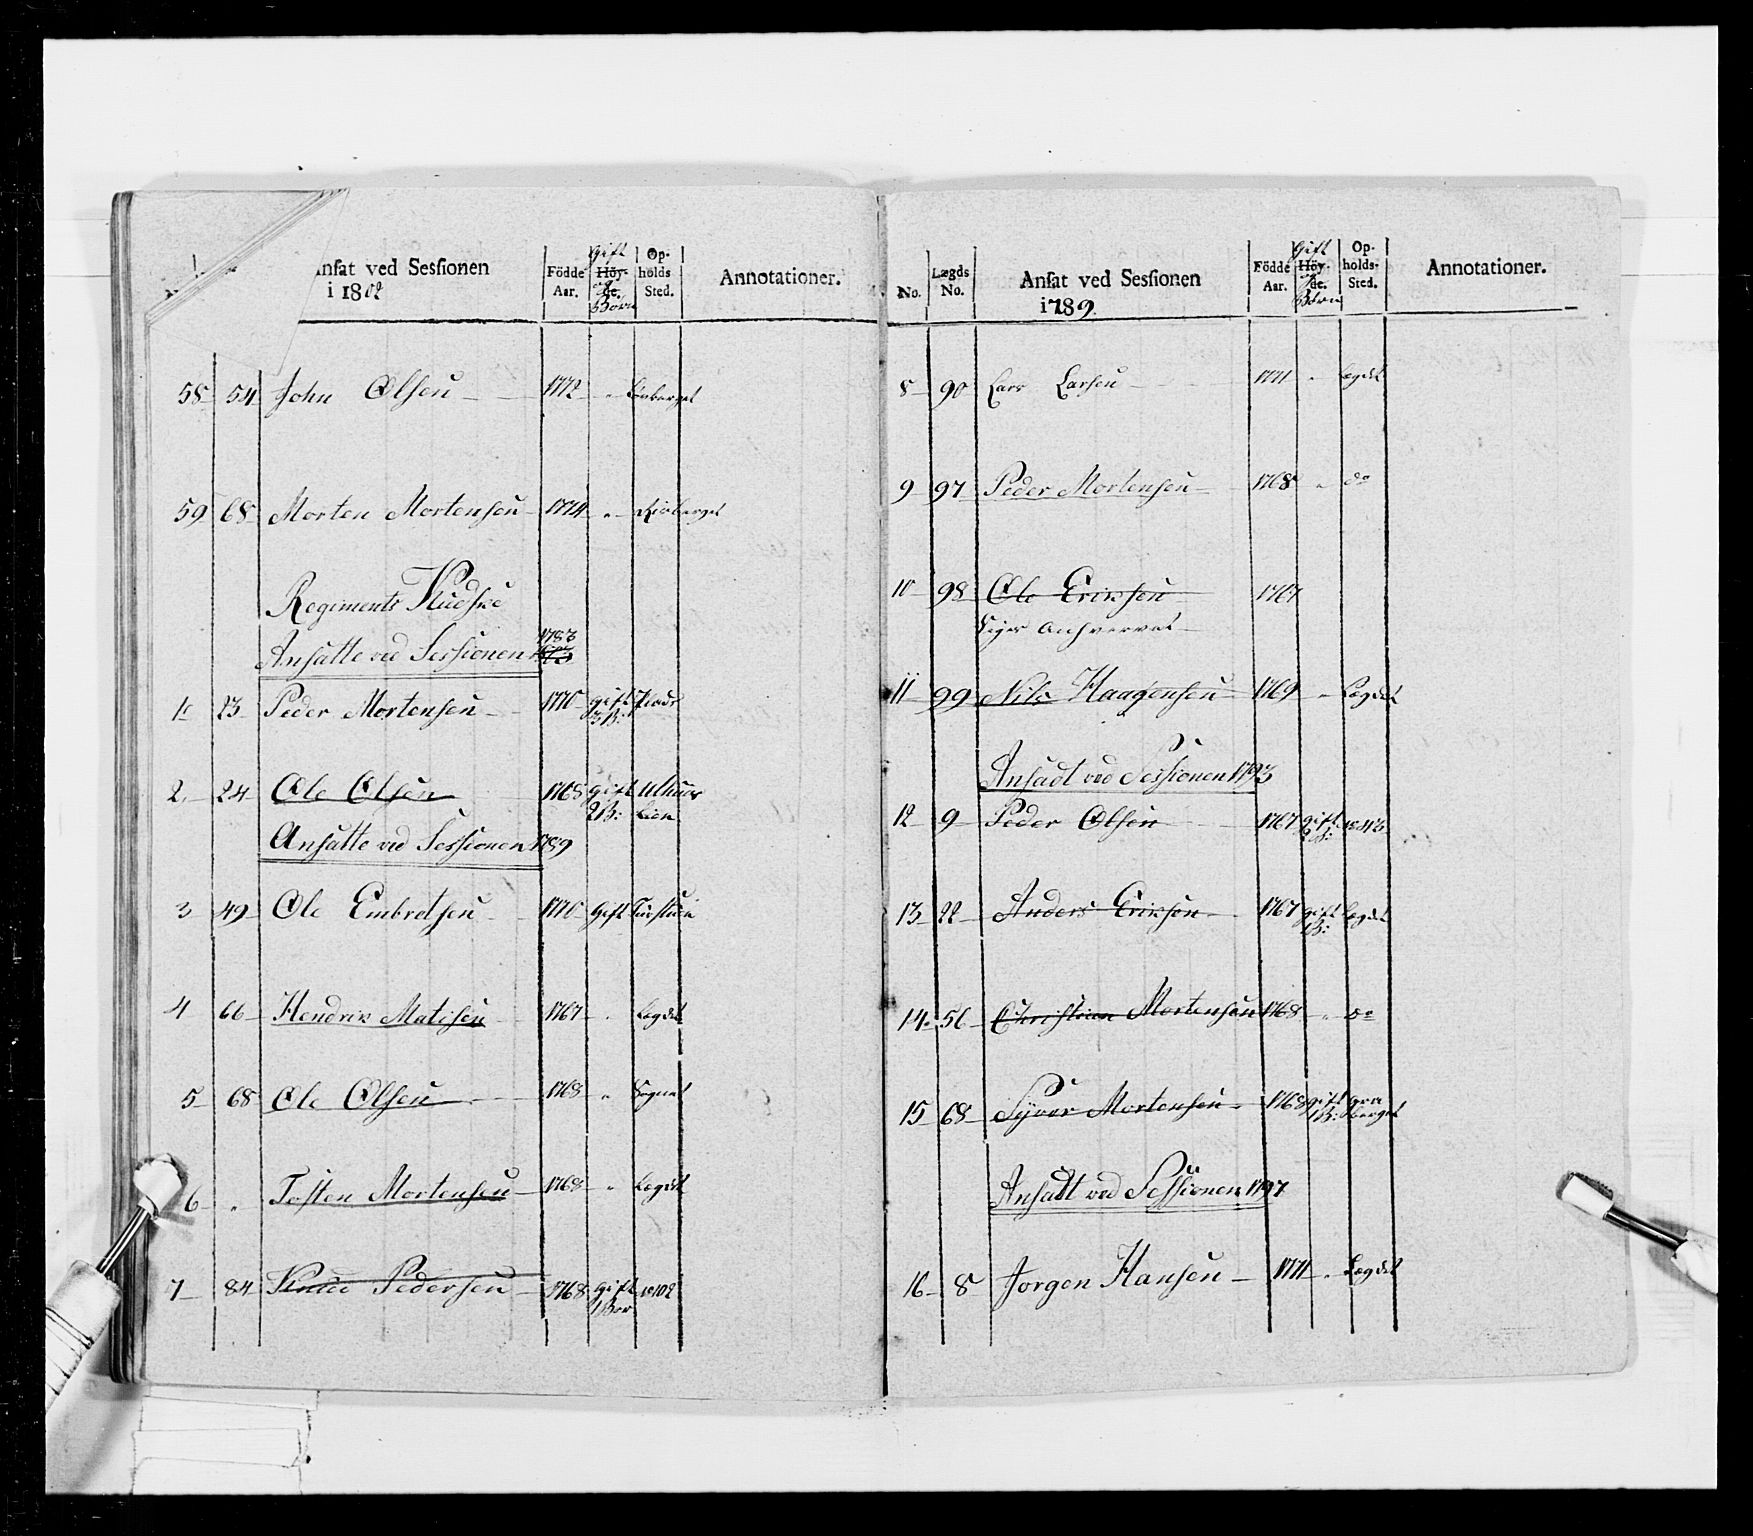 Ansat ved Sessionen
i 1802
Födde Aar.
Gift
Höy-
og
de.
Börn
Op-
holds
Sted.
Annotationer.
58 54 John Olsen 1772 "
59 68 Morten Mortensen 1774 "
Regiments Kudske
Ansatte ved Sessionen 1783
1 23 Peder Mortensen 1770 gift
3 B:
2. 24 Ole Olsen 1768 gift
2 B:
Ansatte ved Sessionen 1789
3 49 Ole Embretsen 1770 Gift
4 66 Hendrik Matisen 1767 " Legdet
5 68 Ole Olsen 1768 " Sognet
6 " Tosten Mortensen 1768 " Legdet
7 84 Knud Pedersen 1768 Gift No 102
1 Bar
No. Lægds
No.
Ansat ved Sessionen
i 1789.
Födde
Aar.
Gift
Höy-
og
de.
Börn
Op-
holds-
Sted.
Annotationer.
8 90 Lars Larsen 1771 " Legdet
9 97 Peder Mortensen 1768 " do
10 98 Ole Eriksen 1767
11 99 Nils Haagensen 1769 " Legdet
Ansadt ved Sessionen 1793
12 9 Peder Olsen 1767 gift
2 B:
13 22 Anders Eriksen 1767 gift Legdet
1 B:
14. 56 Christian Mortensen 1768 " do
15 68 Syver Mortensen 1768 gift
1 B: berget
Ansadt ved Sessionen 1797
16 8 Jorgen Hansen 1771 " Legdet